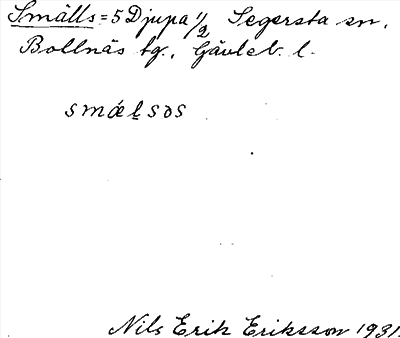 Smälls = 5 Djupa 1/2 Segersta sn,
Bollnäs tg., Gävleb. l.
smæḷsəs
Nils Erik Eriksson 1931.